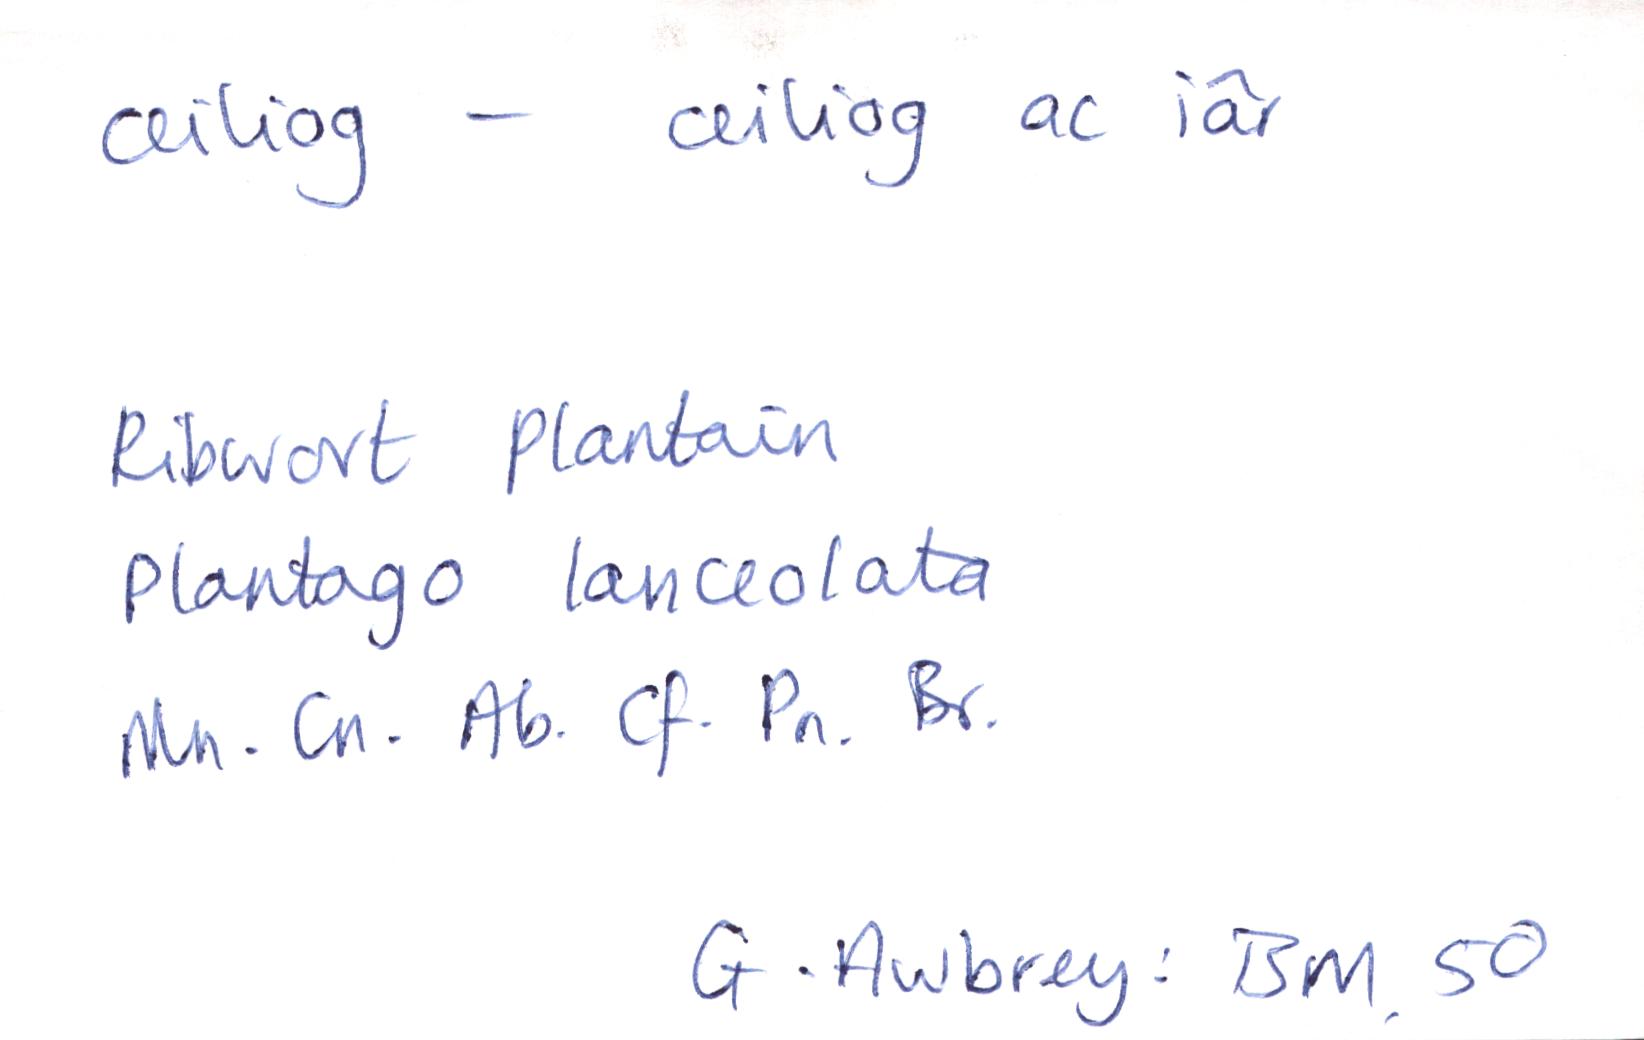 ceiliog - ceiliog ac iâr
Ribwort plantain
Plantago lanceolata
Mn. Cn. Ab. Cf. Pn. Br.
G. Awbrey: BM, 50